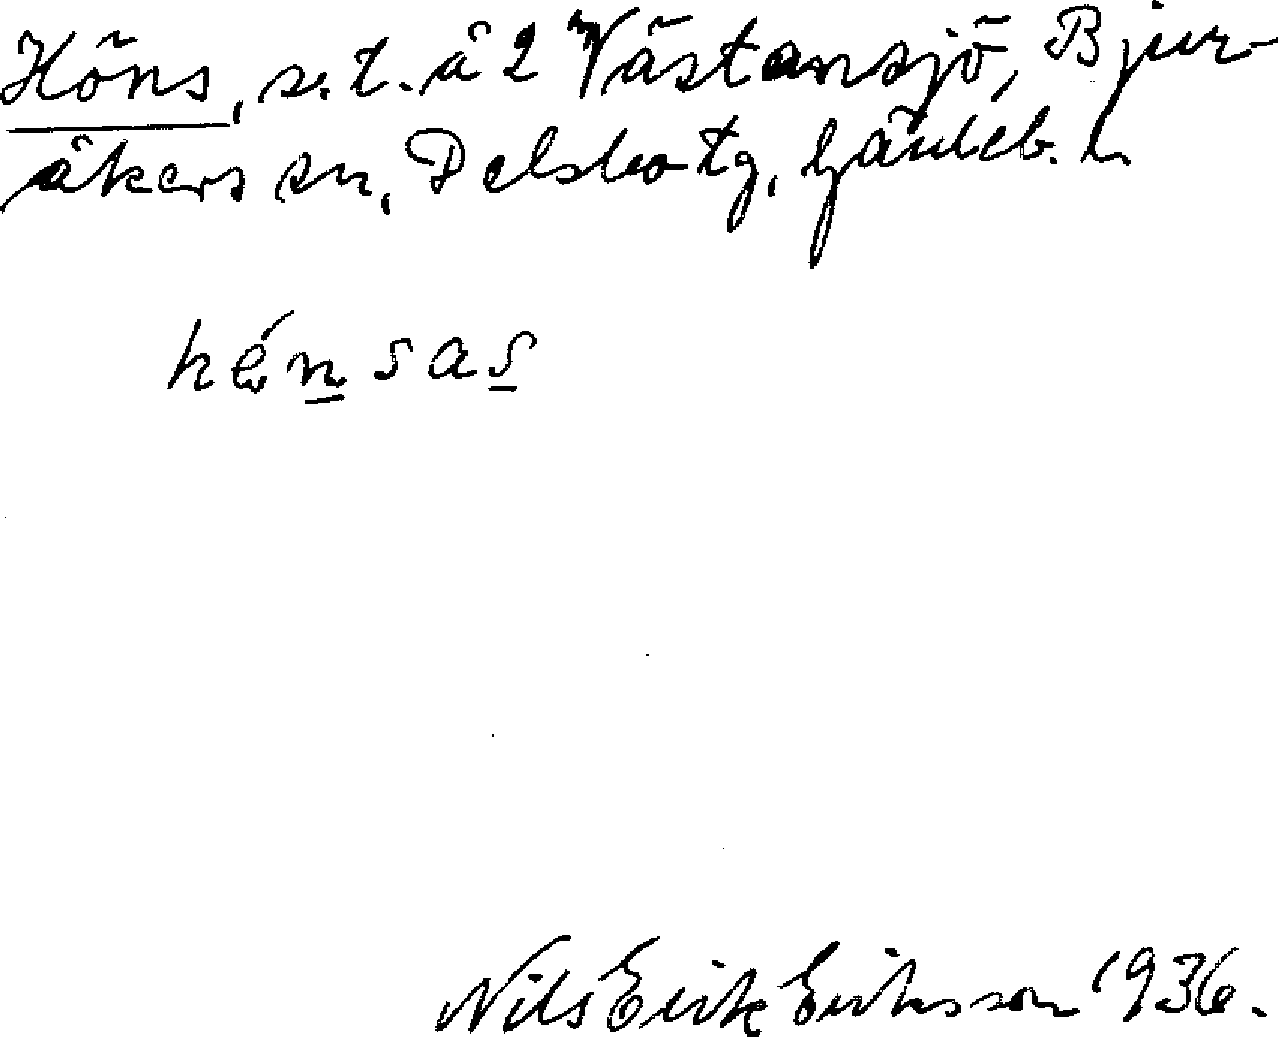 Höns, s.t. å 2 Västansjö, Bjur-
åkers sn, Delsbo tg, Gävleb. l.
Nils Erik Eriksson 1936.